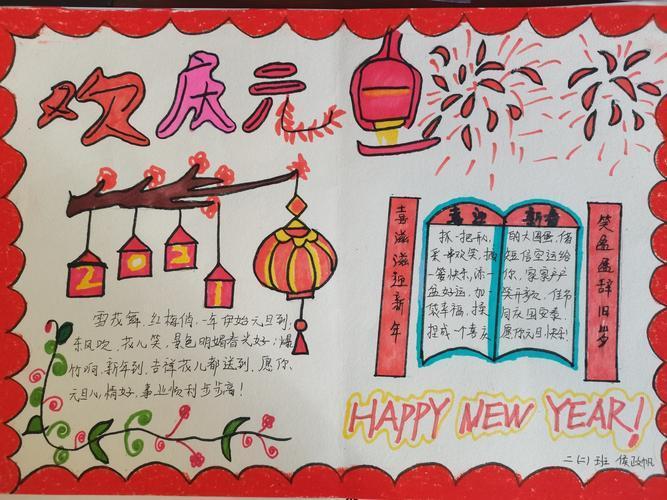 欢庆元旦
2021
雪花舞,红梅俏,一年伊始元旦到;
东风吹,花儿笑,景色明媚春光好;爆
竹响,新年到,吉祥花儿都送到,愿你
元旦心情好,事业顺利步步高!
喜滋滋迎新年
喜迎新春
抓一把开心,
采一串欢笑,摘
一箩快乐,添一
盆好运,加一
袋幸福,揉
捏成一个喜庆
的大圆蛋,借
短信空运给
你,家家户户
笑开新衣,佳节
同庆国安泰,
愿你元旦快乐!
笑盈盈辞旧岁
HAPPY NEW YEAR!
二(二)班